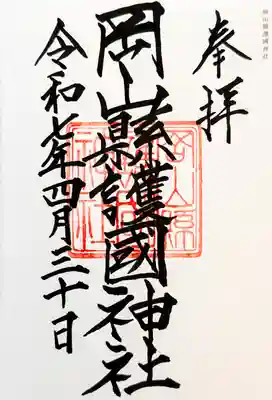 岡山縣護國神社
奉拝
岡山縣護國神社
令和七年四月三十日